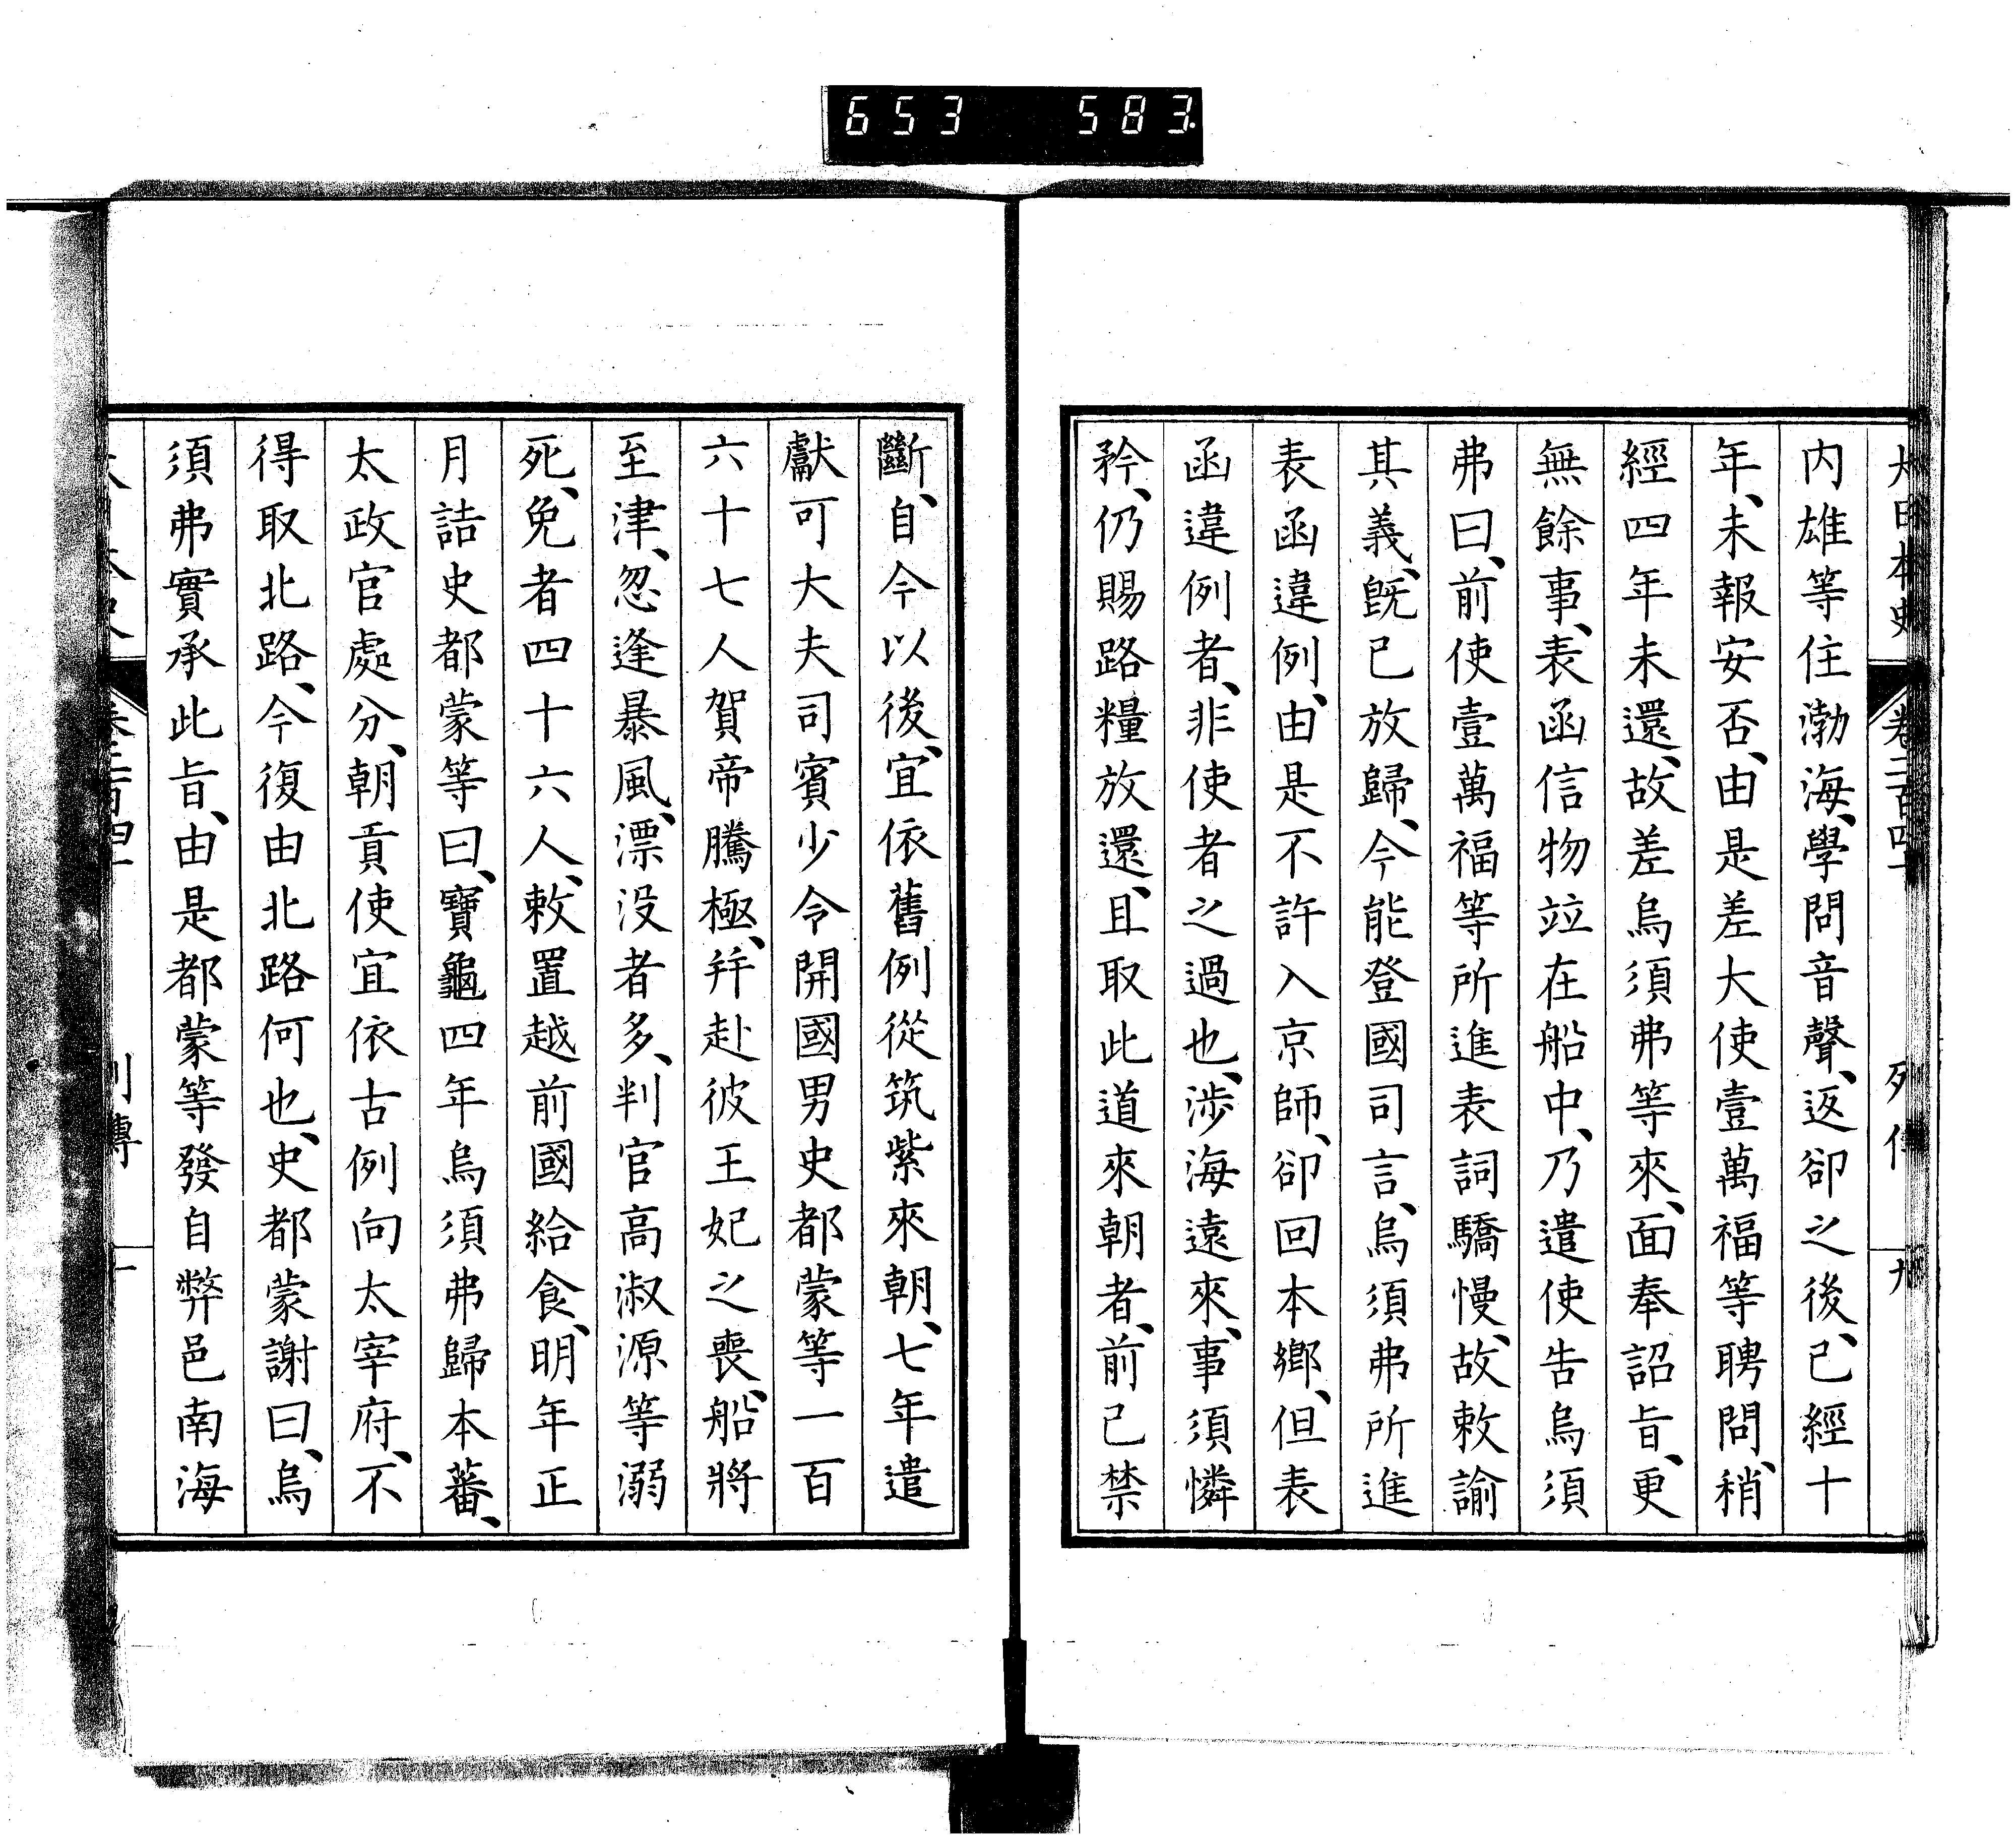 653 583.
大日本史 卷二百四十 列傳 九
内雄等住渤海、學問音聲、返卻之後、已經十
年、未報安否、由是差大使壹萬福等聘問、稍
經四年未還、故差烏須弗等來、面奉詔旨、更
無餘事、表函信物竝在船中、乃遣使告烏須
弗曰、前使壹萬福等所進表詞驕慢、故敕諭
其義、既已放歸、今能登國司言、烏須弗所進
表函違例、由是不許入京師、卻回本鄉、但表
函違例者、非使者之過也、涉海遠來、事須憐
矜、仍賜路糧放還、且取此道來朝者、前已禁
斷、自今以後、宜依舊例從筑紫來朝、七年遣
獻可大夫司賓少令開國男史都蒙等一百
六十七人賀帝騰極、幷赴彼王妃之喪、船將
至津、忽逢暴風、漂没者多、判官高淑源等溺
死、免者四十六人、敕置越前國給食、明年正
月詰史都蒙等曰、寶龜四年烏須弗歸本蕃、
太政官處分、朝貢使宜依古例向太宰府、不
得取北路、今復由北路何也、史都蒙謝曰、烏
須弗實承此旨、由是都蒙等發自弊邑南海